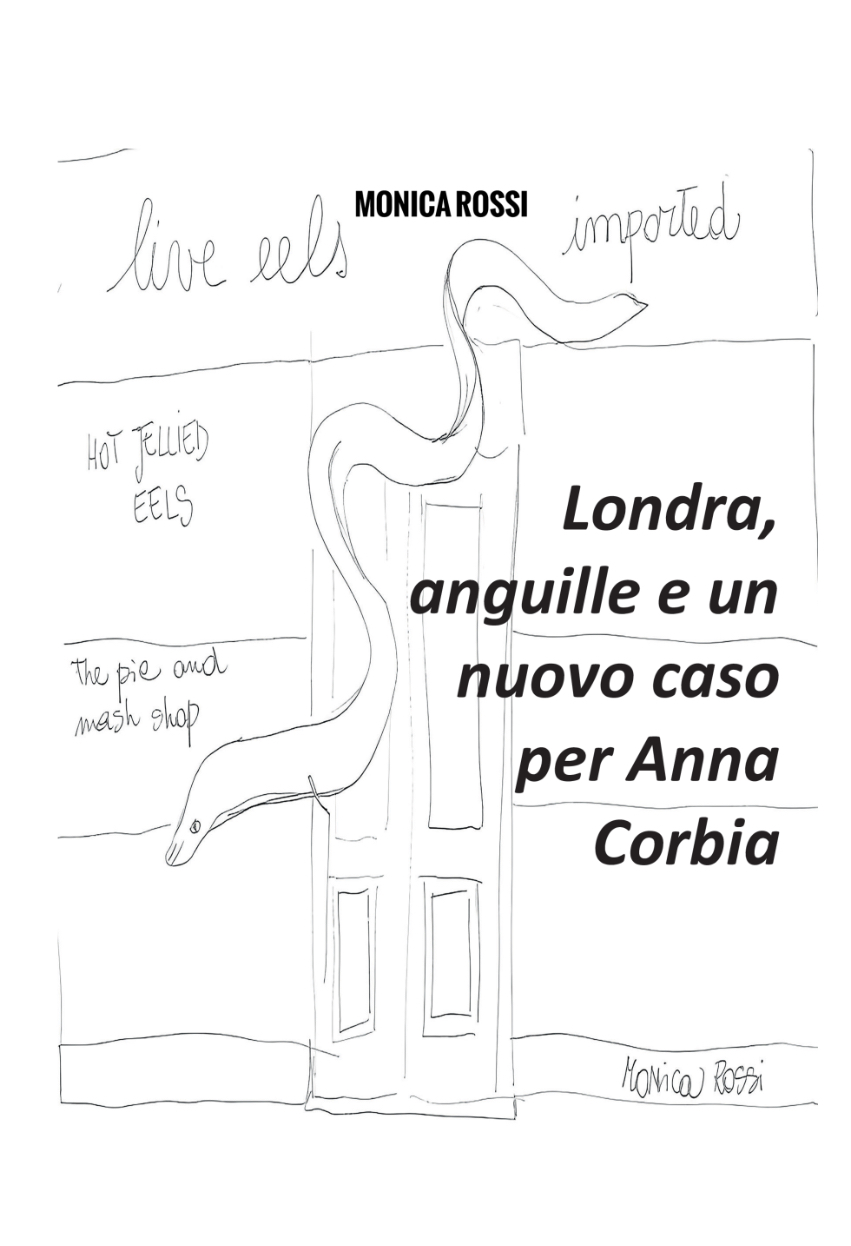 MONICA ROSSI
live eels imported
HOT JELLIED
EELS
Londra,
anguille e un
nuovo caso
per Anna
Corbia
The pie and
mash shop
Monica Rossi